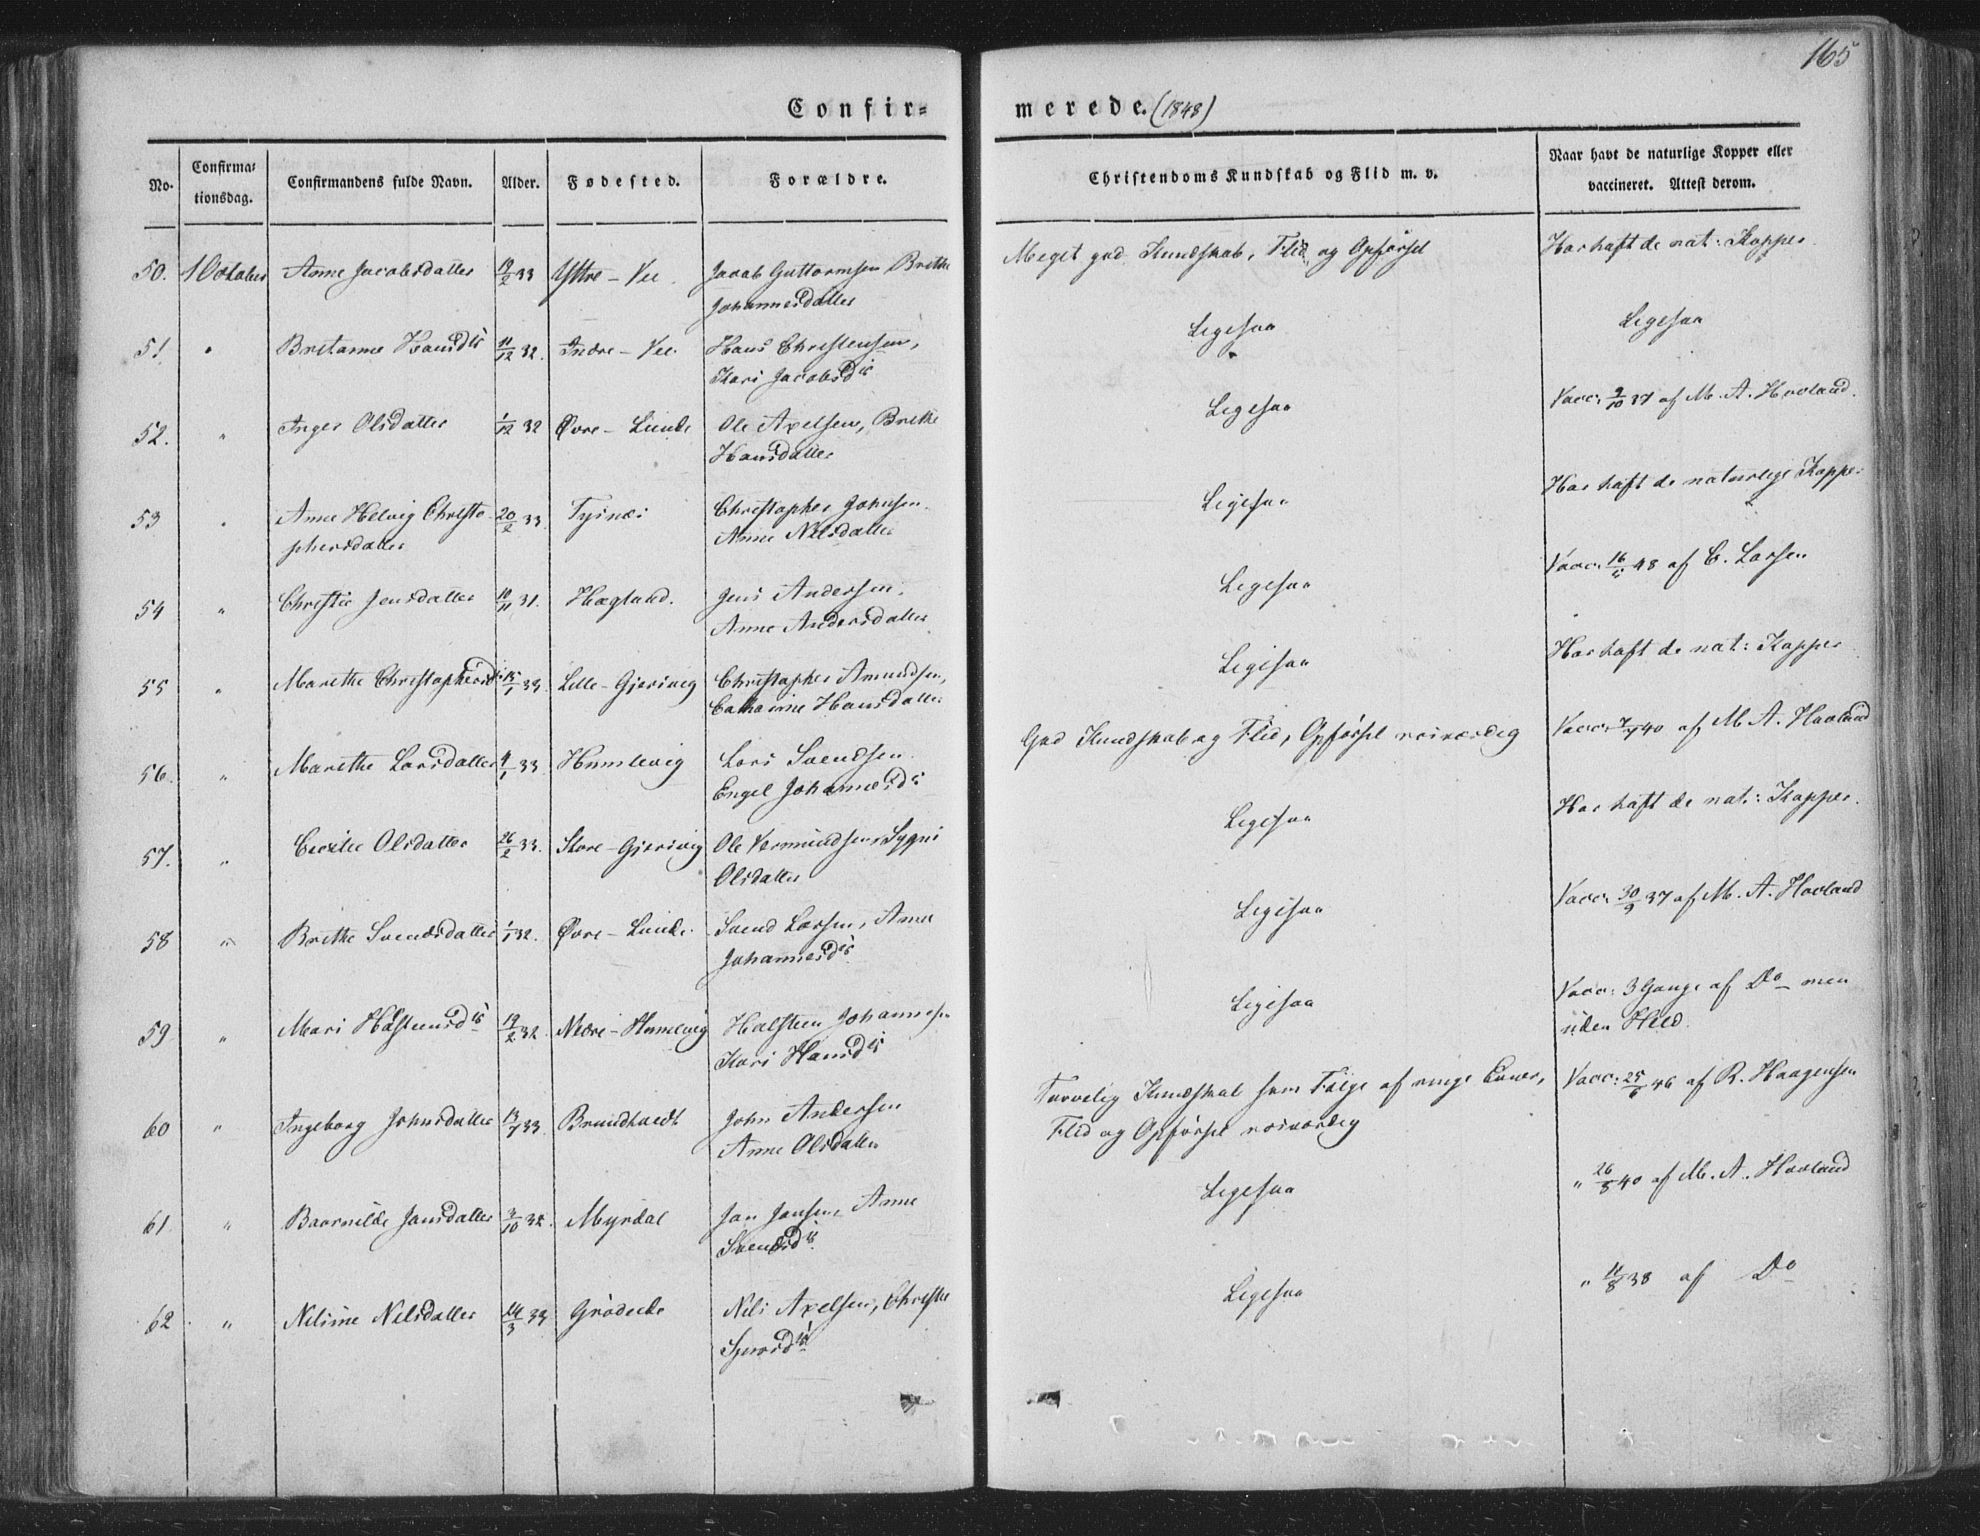 165
Confir-
merede. (1848)
No.
Confirma-
tionsdag.
Confirmandens fulde Navn.
Alder.
Fødested.
Forældre.
Christendoms Kundskab og Flid m. v.
Naar havt de naturlige Kopper eller
vaccineret. Attest derom.
50. 1 October Anne Jacobsdatter 19/2 33 Ystre-Vee. Jacob Guttormsen Brithe
Johannesdatter
Meget god Kundskab, Flid og Opførsel
Har haft de nat: Kopper.
51. " Britanne Hansd 11/12 32. Indre-Vee. Hans Christensen,
Kari Jacobsd
Ligesaa
Ligesaa
52. " Inger Olsdatter 1/12 32 Øvre-Lunde Ole Axelsen, Brithe
Hansdatter
Ligesaa
Vacc: 9/10 37 af M. A. Hovland.
53 " Anne Helvig Christo
phersdatter 20/2 33. Tysnæs Christopher Johnsen.
Anne Nilsdatter
Ligesaa
Har haft de naturlige Kopper
54 " Christie Jensdatter 10/11 31. Hægland. Jens Andersen.
Anne Andersdatter
Ligesaa
Vacc: 48 af C. Larsen
55 " Marethe Christophersd 15/1 33. Lille-Gjerivig Christopher Amundsen,
Cathrine Hansdatter
Ligesaa
Har haft de nat: Kopper
56. " Marithe Larsdatter 4/1 33 Humlevig Lars Svendsen.
Engel Johannesd
God Kundskab og Flid, Opførsel rosværdig
Vacc: 40 af M. A. Hovland
57. " Cecilie Olsdatter 26/2 33. Store-Gjerivig Ole Vermundsen, Sygni
Olsdatter
Ligesaa
Har haft de nat: Kopper.
58 " Brithe Svendsdatter 1/1 32. Øvre-Lunde. Svend Larsen, Anna
Johannesd
Ligesaa
Vacc: 30/9 37 af M. A. Hovland
59 " Mari Halsteensd 19/2 32. Nedre-Humlevig Halsteen Johannesen
Kari Hansd
Ligesaa
Vacc: 3 Gange af Do men
uden Held.
60 " Ingeborg Johnsdatter 13/7 33. Brundtvedt John Andersen
Anne Olsdatter
Tarvelig Kundskab som Følge af ringe Evner,
Flid og Opførsel rosværdig
Vacc: 25/6 46 af R. Haagensen
61. " Baarnilde Jansdatter 3/10 32. Myrdal Jan Jansen, Anne
Svendsd
Ligesaa
" 26/8 40 af M. A. Hovland
62 " Nilsine Nilsdatter 24/3 33 Grødede Nils Axelsen, Christhe
Sjursd
Ligesaa
" 11/8 38 af Do